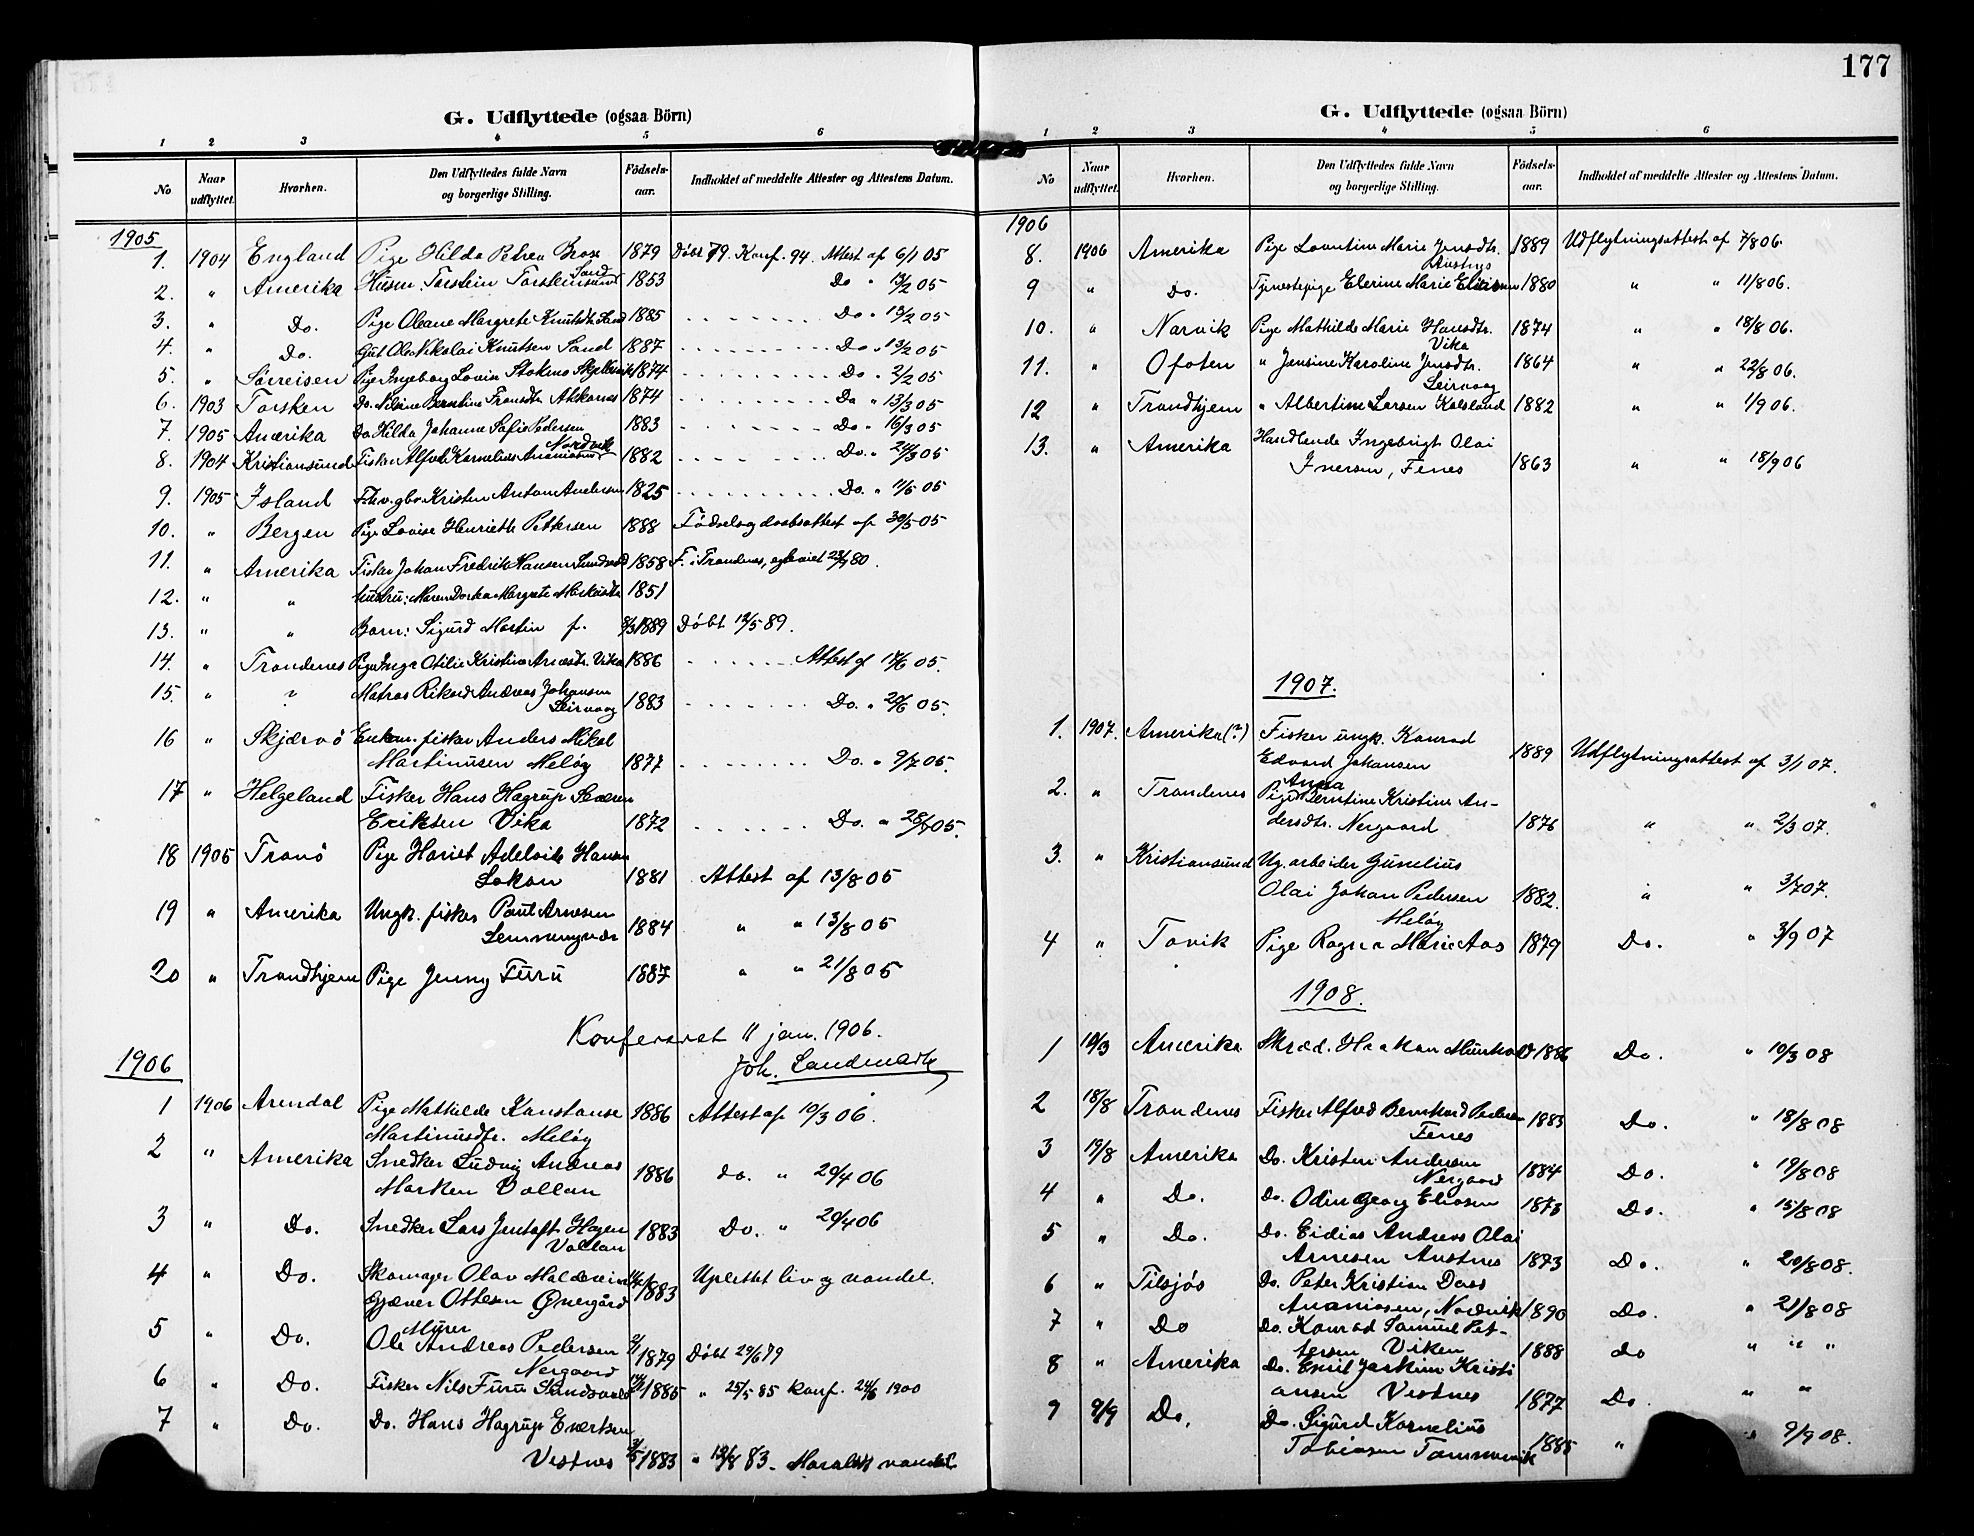 G. Udflyttede (ogsaa Börn)
1 2 3 4 5 6
No Naar udflyttet. Hvorhen. Den Udflyttedes fulde Navn og borgerlige Stilling. Fødsels-aar. Indholdet af meddelte Attester og Attestens Datum.
1905
1. 1904 England Pige Hilda Petrea 1879 Döbt 79. Konf. 94. Attest af 6/1 05
Sand
2. " Amerika Husm. Torstein Torsteinsen 1853 Do " 13/2 05
3. " Do. Pige Oleane Margrete Knutsdtr. Sand 1885 Do " 13/2 05
4. " Do. Gut Ole Nikolai Knutsen Sand 1887 Do. " 13/2 05
5. " Sørreisen Pige Ingeborg Lovise 1874 Do. " 2/2 05
6. 1903 Torsken Do. Nilsine Berntine 1874 Do " 13/3 05
7. 1905 Amerika Do Hilda Johanna Sofie Pedersen 1883 Do. " 16/3 05
Nordvik
8. 1904 Kristiansund Fisker Alfred Kornelius Ananiassen 1882 Do. " 24/3 05
9. 1905 Island Kristen Anton Andersen 1825 Do. " 11/5 05
10. " Bergen Pige Lovise Henriette Pettersen 1888 Fødsels og daabsattest af 30/5 05
11. " Amerika Fisker Johan Fredrik Hansen 1858 F. i Trondenes, egteviet 80.
12. " " hustru: Maren Dorthea Margrete 1851
13. " " Barn: Sigurd Martin f. 8/3 1889 Döbt 12/5 89.
14. " Trondenes Pige Inga Otilie Kristine Arnesdtr. Vika 1886 Attest af 17/6 05.
15. " " Matros Rikard Andreas Johansen
Leirvaag 1883 Do. " 20/6 05.
16 " Skjærvö Enkem. fisker Anders Mikal
Martinusen Meløy 1877 Do. " 9/7 05.
17 " Helgeland Fisker Hans Hagrup
Eriksen Vika 1872 Do. " 28/7 05.
18 1905 Tranö Pige Hariet Adelvide Hansen
Lekan 1881 Attest af 13/8 05
19 " Amerika Ungk. fisker Paul Arnesen
Lemmingvær 1884 " " 13/8 05
20 " Trondhjem Pige Jenny Furu 1887 " " 21/8 05
Konfereret 11 jan. 1906.
Joh. Landmark
1906
1 1906 Arendal Pige Mathilde Konstanse 1886 Attest af 10/3 06.
Martinusdtr. Meløy
2 " Amerika Snedker Ludvig Andreas 1886 do. " 29/4 06
Morken Vollan
3 " Do. Snedker Lars Jentoft Hagen 1883 Do. " 29/4 06
Vollan
4 " Do. Skomager Olav 1883 Uplettet liv og vandel.
Gjæver Ottesen Övergård
Murer
5 " Do. Ole Andreas Pedersen 1879 Döbt 29/6 79
Nergaard
6 " Do. Fisker Nils Furu Sandsvold 1885 " 25/5 85 konf. 24/6 1900
7 " Do. Do. Hans Hagrup
Vestnes 1883 " 12/8 83. vandel
177
G. Udflyttede (ogsaa Börn)
1 2 3 4 5 6
No Naar udflyttet. Hvorhen. Den Udflyttedes fulde Navn og borgerlige Stilling. Fødsels-aar. Indholdet af meddelte Attester og Attestens Datum.
1906
8. 1906 Amerika Pige Lorentine Marie Jensdtr. 1889 Udflytningsattest af 7/8 06.
9 " Do. Tjenestepige Elerine Marie 1880 " " 11/8 06.
10. " Narvik Pige Mathilde Marie Hansdtr. 1874 " " 18/8 06.
Vika
11. " Ofoten " Jensine Karoline Jensdtr. 1864 " " 22/8 06.
Leirvaag
12 " Trondhjem " Albertine Larsen Kalsland 1882 " " 1/9 06.
13. " Amerika Handlende Ingebrigt Olai
Iversen, Fenes 1863 " " 18/9 06
1907.
1. 1907. Amerika(?) Fisker ungk. Konrad
Edvard Johansen 1889 Udflytningsattest af 3/1 07.
Anna
2. " Trondenes Pige Berntine Kristine An-
dersdtr. Nergaard 1876 " " 2/3 07.
3. " Kristiansund Ug. arbeider Gunelius
Olai Johan Pedersen 1882. " " 3/7 07.
Meløy
4 " Tovik Pige Ragna Marie Aas 1879 Do. " 3/9 07
1908.
1 10/3 Amerika Skræd. Haakan 1886 Do. " 10/3 08
2 18/8 Trondenes Fisker Alfred Bernhard Pedersen 1883 Do. " 18/8 08
Fenes
3 19/8 Amerika Do. Kristen Andersen 1884 Do. " 19/8 08
Nergaard
4 " Do. Do. Odin Georg Eliasen 1873 Do. " 15/8 08
5 " Do. Do. Eidias Andreas Olai
Arnesen Austnes 1873 Do. " 20/8 08.
6 " Tilsjös Do. Peter Kristian Dass
Ananiasen, Nordvik 1890 Do. " 21/8 08
7 " Do Do. Konrad Samuel Pet-
tersen Viken 1888 do " " "
8 " Amerika Do. Emil Joakim Kristi
ansen Vestnes 1877 Do. " "
9 9/9 Do. Do. Sigurd Kornelius
Tobiasen Tømmervik 1885 " " 9/9 08.